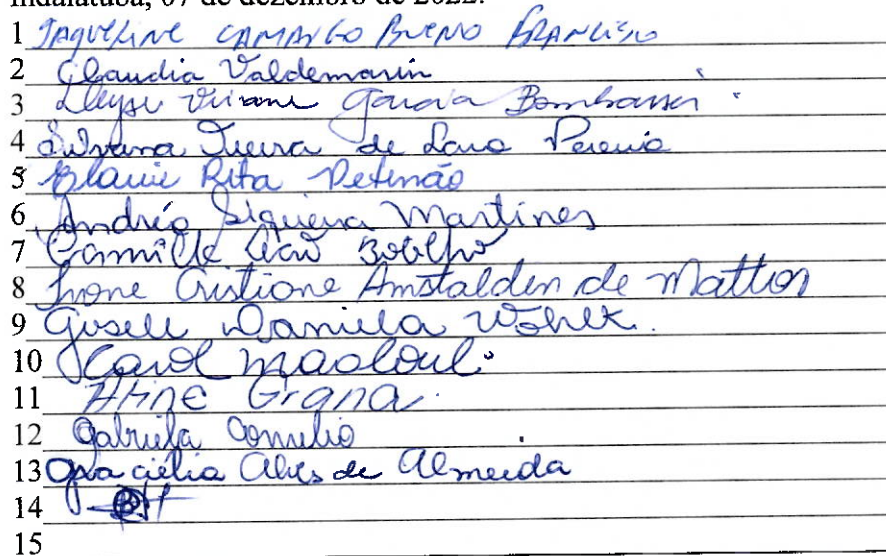 Indaiatuba, 07 de dezembro de 2022.
1 JAQUELINE CAMARGO BUENO FRANCISCO
2 Claudia Valdemarin
3 Viviane Garcia Bombassi
4 Silvana de Lara Pereira
5 Rita
6 Andréa Siqueira Martines
7 Camille
8 Ivone Cristiane Amstalden de Mattos
9 Gisele Daniela
10 Carol
11 Aline Grana
12 Gabriela Cornelio
13 Graciélia Alves de Almeida
14
15